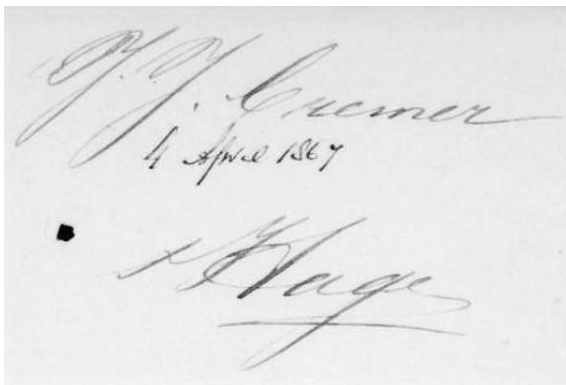 J. J. Cremer
4 April 1867
s Hage